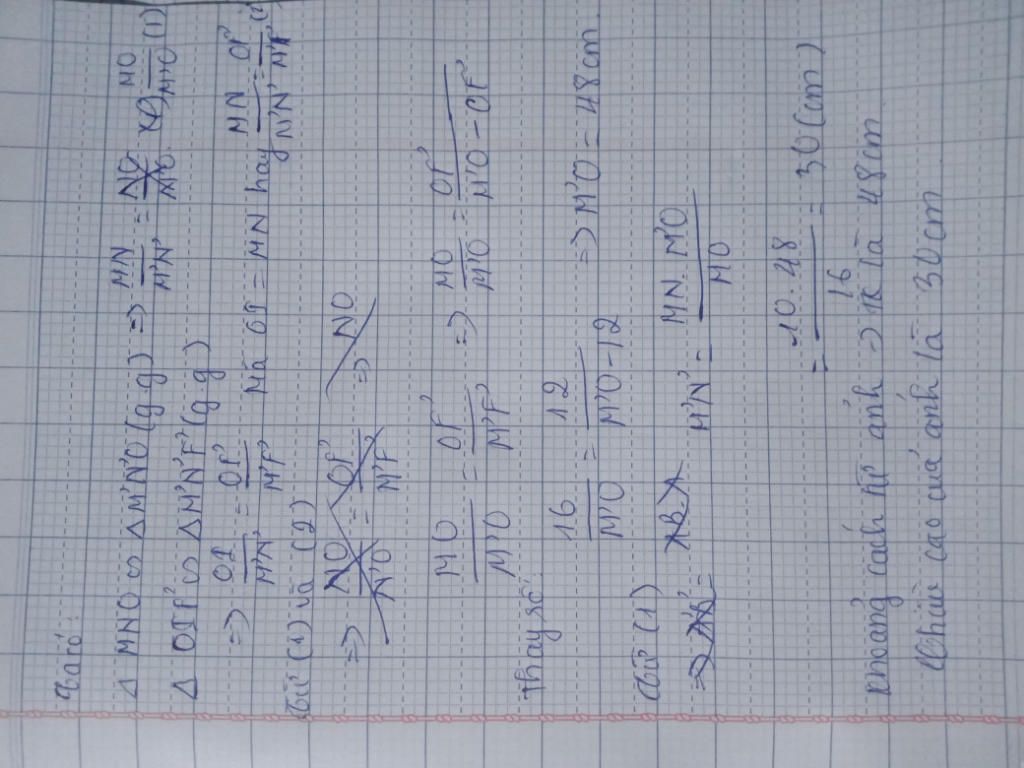 Ta có:
Δ MNO ∽ Δ M'N'O (g g) => MN/M'N' = MO/M'O (1)
Δ OIF' ∽ Δ M'N'F' (g g)
=> OI/M'N' = OF'/M'F' Mà OI = MN hay MN/M'N' = OF'/M'F' (2)
Từ (1) và (2)
=> NO/N'O = OF'/M'F' => NO
MO/M'O = OF'/M'F' => MO/M'O = OF'/M'O - OF'
Thay số:
16/M'O = 12/M'O - 12 => M'O = 48cm
Từ (1)
=> M'N' = MN. M'O/MO
= 10. 48/16 = 30 (cm)
khoảng cách từ ảnh => tk là 48cm
Chiều cao của ảnh là 30cm